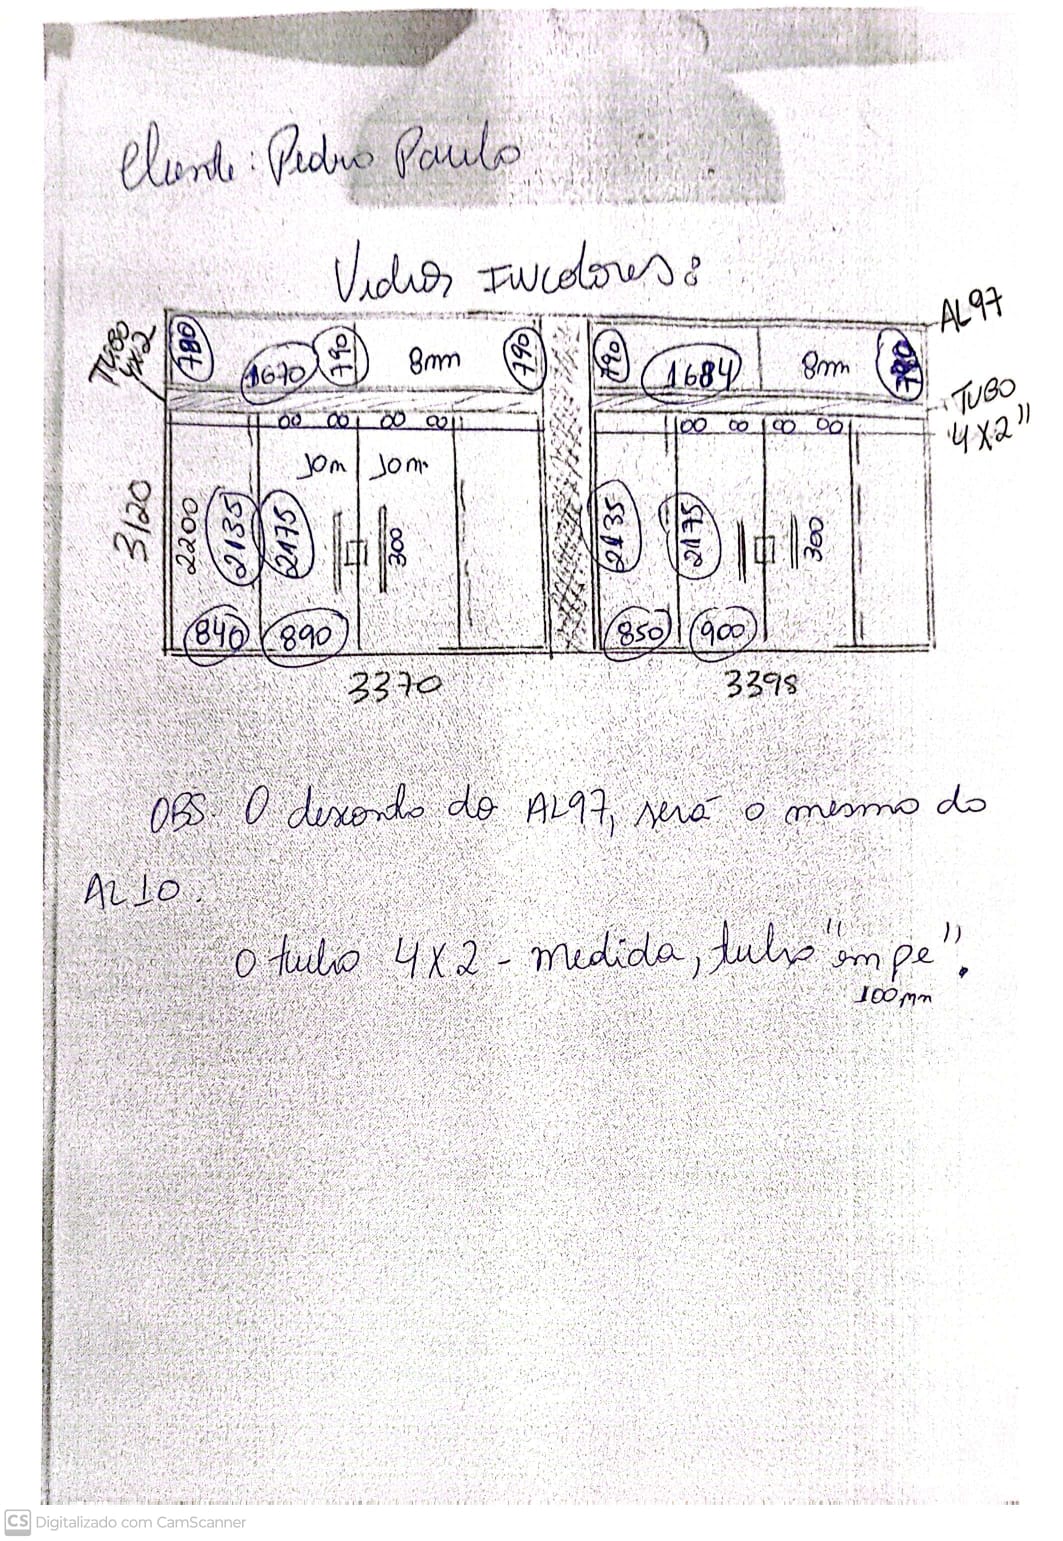 Cliente: Pedro Paulo
Vidros INColores:
AL97
TUBO
4x2
780
1670
790
8mm
790
790
1684
8mm
780
TUBO
4x2"
00 00 00 00
00 00 00 00
10m 10m
3120
2200
2135
2175
300
2135
2175
300
840
890
850
900
3370
3398
OBS. O desconto do AL97, será o mesmo do
AL10.
O tubo 4x2 - medida, tubo "em pe".
100mm
CS Digitalizado com CamScanner